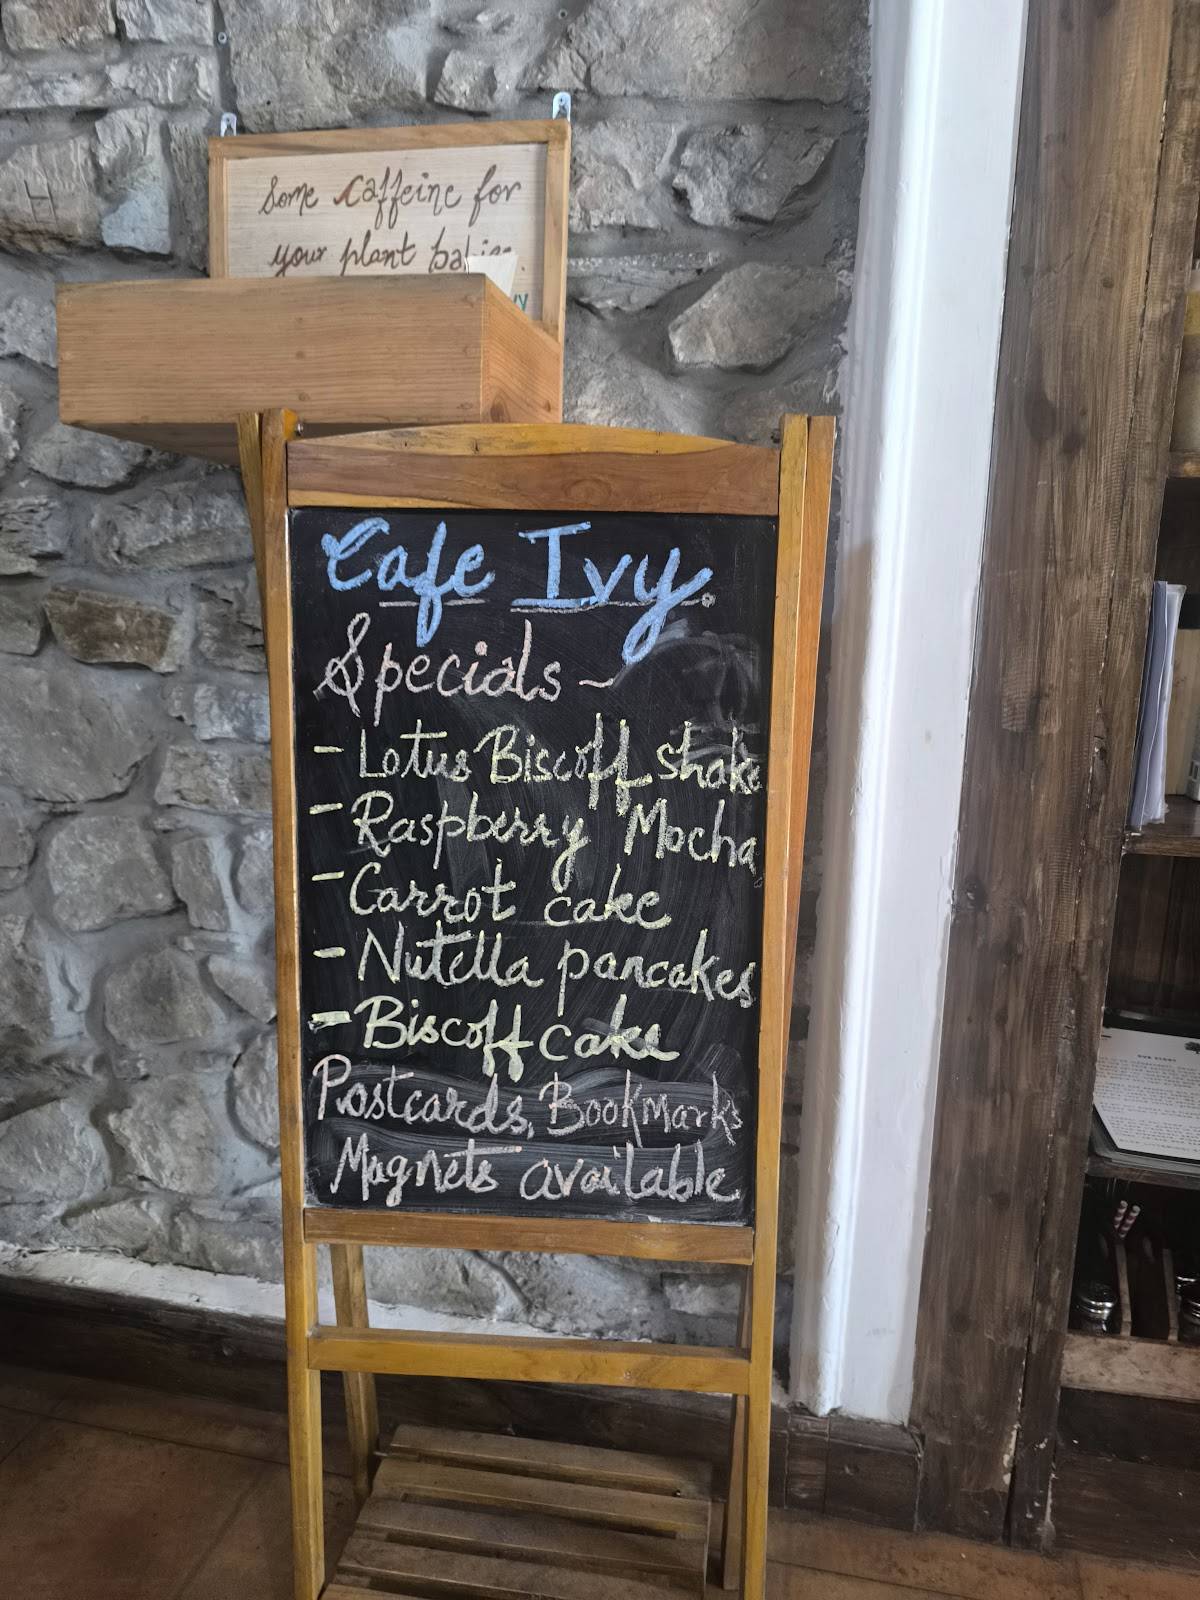 Some caffeine for
your plant babies.
Cafe Ivy.
Specials ~
- Lotus Biscoff shake
- Raspberry Mocha
- Carrot cake
- Nutella pancakes
- Biscoff cake
Postcards, Bookmarks
Magnets available